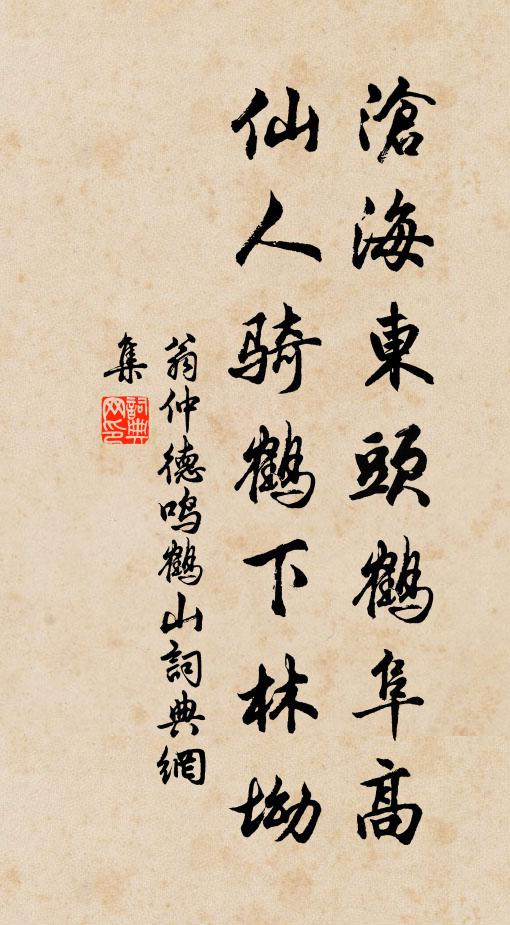 滄海東頭鶴阜高
仙人騎鶴下林坳
翁仲德鳴鶴山詞典網
集
詞典網印